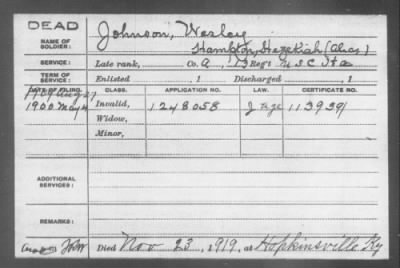 DEAD
NAME OF SOLDIER: Johnson, Wesley
Hampton, Hezekiah (Alias)
SERVICE: Late rank, Co. A, 73 Reg't U S C Inf
TERM OF SERVICE: Enlisted , 1 Discharged , 1
DATE OF FILING. CLASS. APPLICATION NO. LAW. CERTIFICATE NO.
1900 May Invalid, 1248058 1139391
Widow,
Minor,
ADDITIONAL SERVICES:
REMARKS:
Died Nov 23, 1919, at Hopkinsville Ky